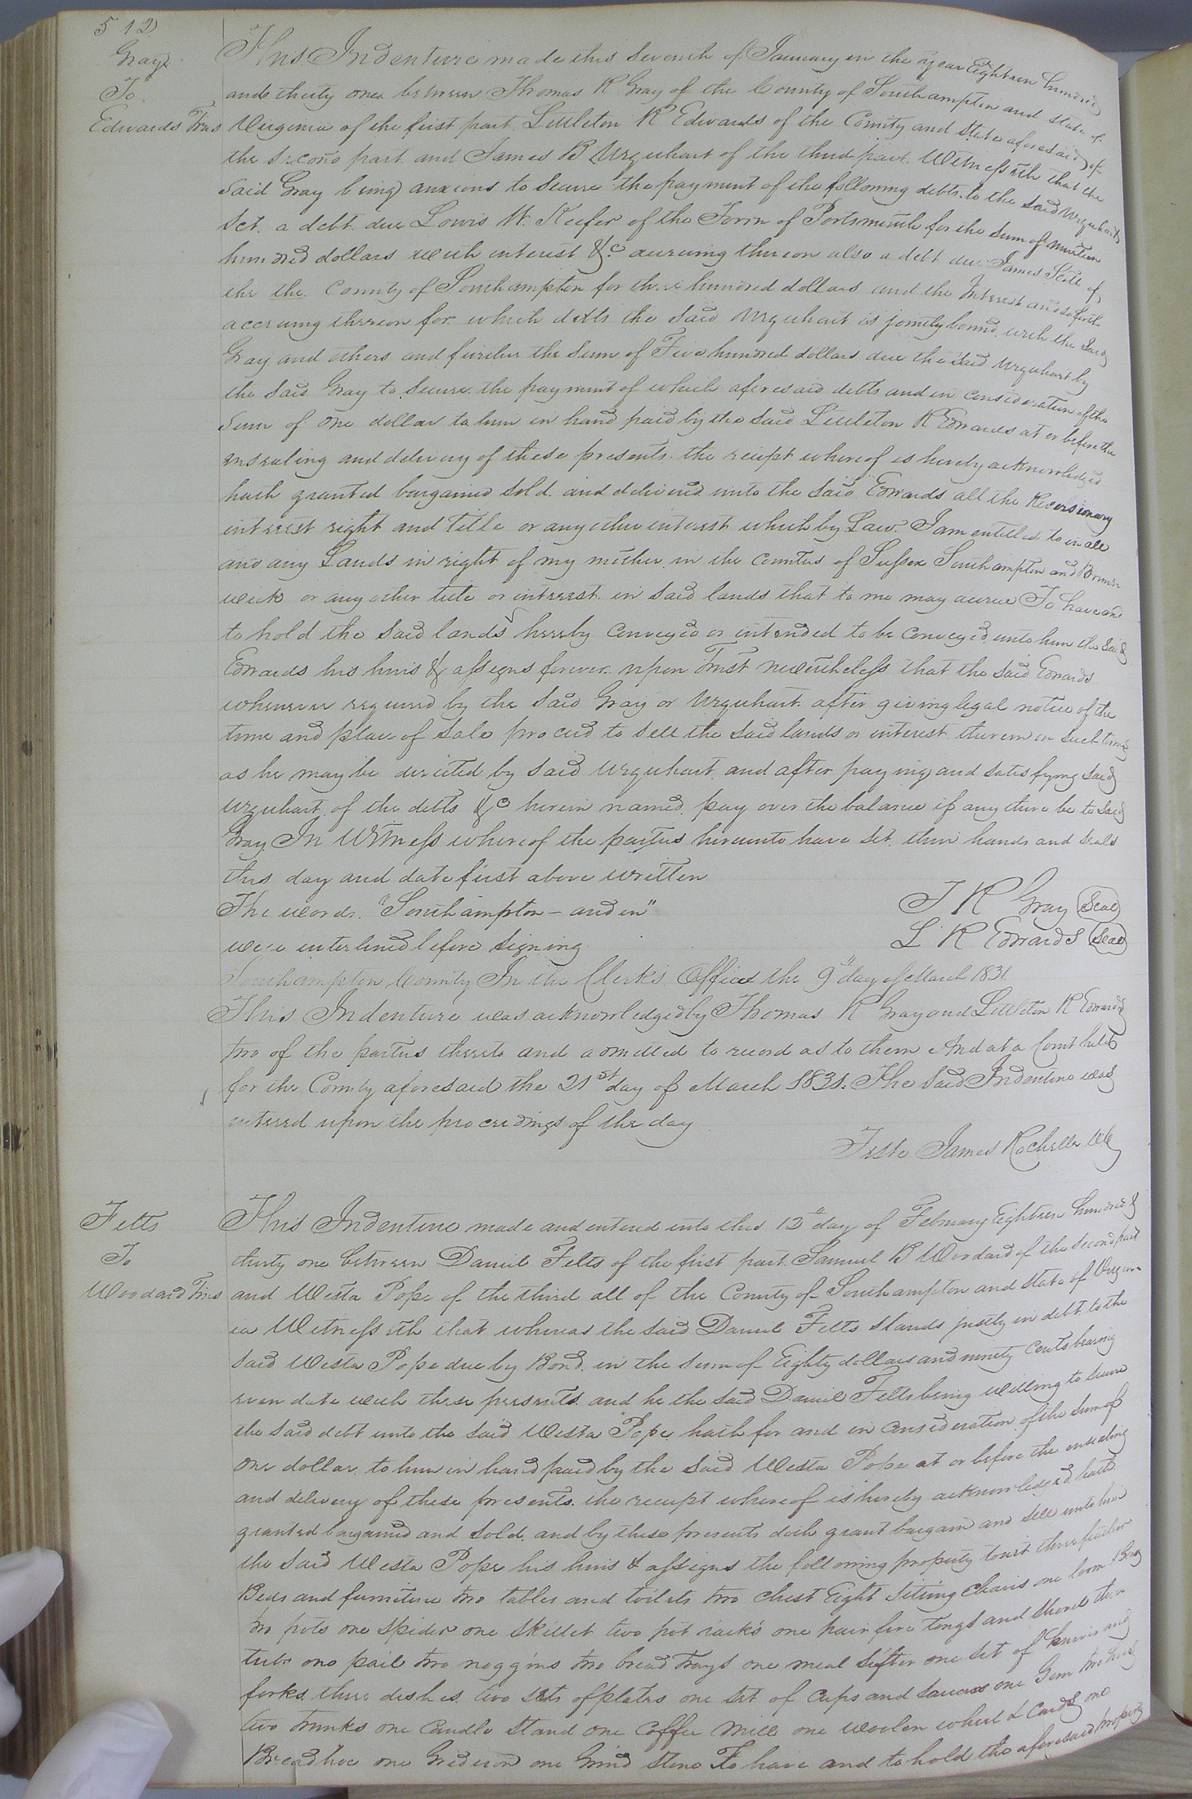 512
Gray
To
Edwards Trus
This Indenture made this Seventh of January in the Year Eighteen hundred
and thirty one between Thomas R Gray of the County of Southampton and State of
Virginia of the first part Littleton R Edwards of the County and State aforesaid of
the second part and James B Urquhart of the third part Witnesseth that the
said Gray being anxious to Secure the payment of the following debts to the said Urquhart
Sct. a debt due Lewis W. Keefer of the Town of Portsmouth for the Sum of
hundred dollars with interest &c accruing thereon also a debt due James of
the the County of Southampton for three hundred dollars and the Interest
accruing thereon for which debts the said Urquhart is jointly bound with the said
Gray and others and further the Sum of Five hundred dollars due the said Urquhart by
the said Gray to Secure the payment of which aforesaid debts and in consideration of the
Sum of one dollar to him in hand paid by the said Littleton R Edwards at or before the
ensealing and delivery of these presents the reciept whereof is hereby acknowledged
hath granted bargained sold and delivered unto the said Edwards all the Reversionary
interest right and title or any other interest which by Law I am entitled to in all
and any Lands in right of my mother in the counties of Sussex Southampton and Bruns
wick or any other title or interest in said lands that to me may accrue To have and
to hold the said lands hereby conveyed or intended to be conveyed unto him the said
Edwards his heirs & assigns forever upon Trust nevertheless that the said Edwards
whenever required by the said Gray or Urquhart after giving legal notice of the
time and place of sale proceed to sell the said lands or interest therein on such terms
as he may be directed by said Urquhart and after paying and satisfying said
Urquhart of the debts &c herein named pay over the balance if any there be to said
Gray In Witness whereof the parties hereunto have set their hands and seals
this day and date first above written
The words "Southampton - and in"
were interlined before signing
T R Gray Seal
L R Edwards Seal
Southampton County In the Clerks Office the 9th day of March 1831
This Indenture was acknowledged by Thomas R Gray and Littleton R Edwards
two of the parties thereto and admitted to record as to them And at a Court held
for the County aforesaid the 21st day of March 1831. The said Indenture was
entered upon the proceedings of the day
Teste James Rochelle Clk
Felts
To
Woodard Trus
This Indenture made and entered into this 12th day of February Eighteen hundred &
thirty one between Daniel Felts of the first part Samuel B Woodard of the second part
and Westa Pope of the third all of the County of Southampton and State of Virgin
ia Witnesseth that whereas the said Daniel Felts stands justly in debt to the
said Westa Pope due by Bond in the sum of Eighty dollars and ninety cents bearing
even date with these presents and he the said Daniel Felts being willing to secure
the said debt unto the said Westa Pope hath for and in consideration of the sum of
one dollar to him in hand paid by the said Westa Pope at or before the ensealing
and delivery of these presents the receipt whereof is hereby acknowledged hath
granted bargained and sold and by these presents doth grant bargain and sell unto him
the said Westa Pope his heirs & assigns the following property towit three feather
Beds and furniture two tables and toilets two chest Eight Sitting Chairs one loom
two pots one spider one skillet two pot racks one pair fire tongs and shovel
tubs one pail two noggins two bread trays one meal sifter one set of knives and
forks three dishes two sets of plates one set of cups and saucers one
two trunks one candle stand one coffee mill one woolen wheel & cards one
Broad hoe one Gridiron one Grind stone To have and to hold the aforesaid property